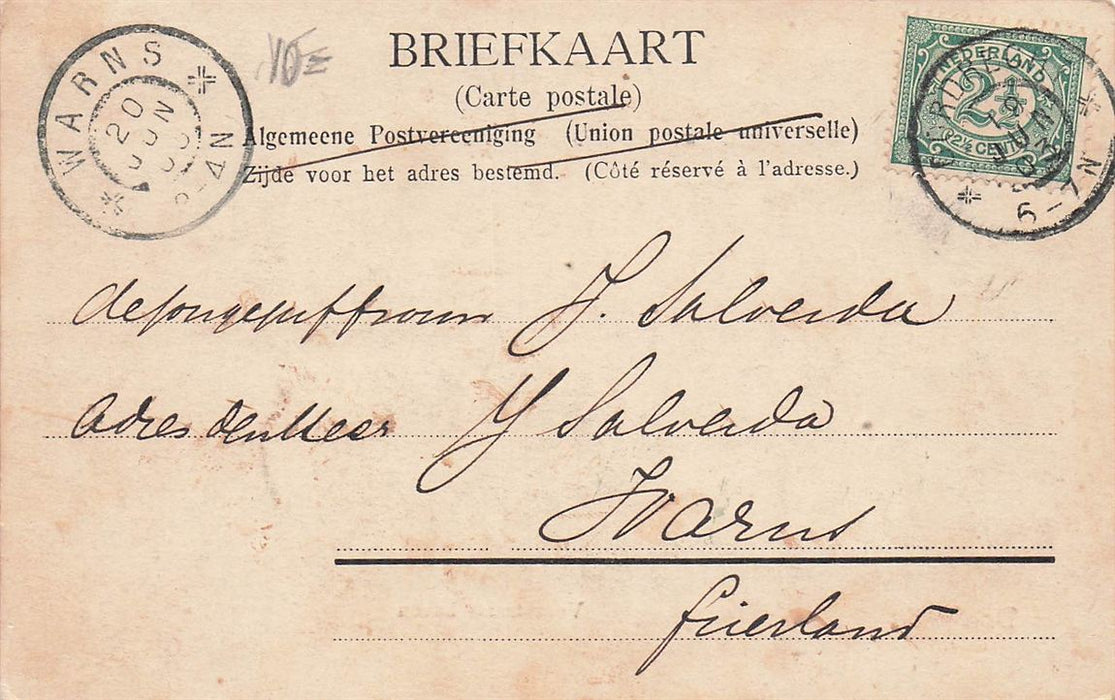 BRIEFKAART
(Carte postale)
Algemeene Postvereeniging (Union postale universelle)
Zijde voor het adres bestemd. (Côté réservé à l'adresse.)
WARNS
20 JUN
3-4N
NEDERLAND
2½
2½ CENT
19 JUN
6-7N
dejongejuffrouw J. Salverda
Adres den Heer Y Salverda
Warns
frierland